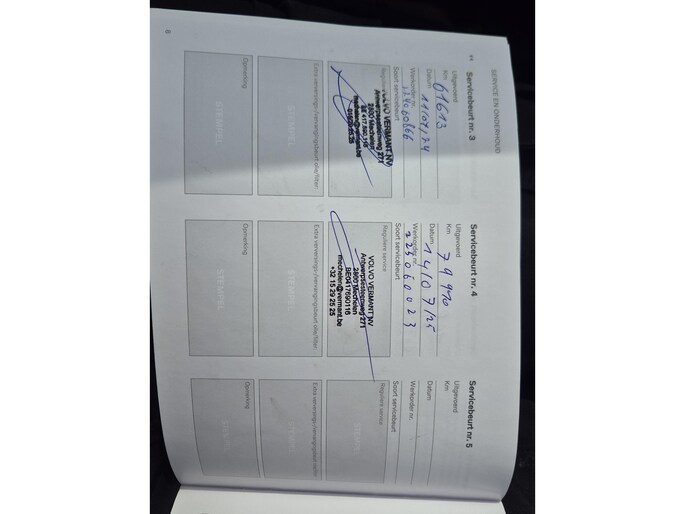 SERVICE EN ONDERHOUD
Servicebeurt nr. 3
Uitgevoerd
Km 61613
Datum 11/07/24
Werkorder nr.
Soort servicebeurt
Reguliere service
VOLVO VERMANT NV
Antwerpsesteenweg 271
2800 Mechelen
mechelen@vermant.be
Extra verversings-/vervangingsbeurt olie/filter.
STEMPEL
Opmerking
STEMPEL
Servicebeurt nr. 4
Uitgevoerd
Km 79910
Datum 14/07/25
Werkorder nr.
225060023
Soort servicebeurt
Reguliere service
VOLVO VERMANT NV
Antwerpsesteenweg 271
2800 Mechelen
BE0417690116
mechelen@vermant.be
+32 15 29 25 25
Extra verversings-/vervangingsbeurt olie/filter.
STEMPEL
Opmerking
STEMPEL
Servicebeurt nr. 5
Uitgevoerd
Km
Datum
Werkorder nr.
Soort servicebeurt
Reguliere service
STEMPEL
Extra verversings-/vervangingsbeurt olie/filter.
STEMPEL
Opmerking
STEMPEL
8